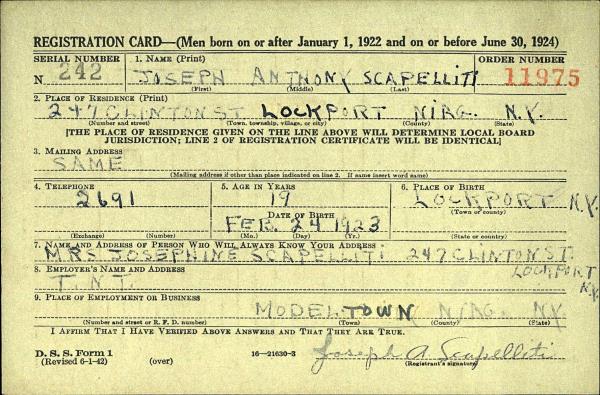 REGISTRATION CARD—(Men born on or after January 1, 1922 and on or before June 30, 1924)
SERIAL NUMBER 1. NAME (Print) ORDER NUMBER
N 242 JOSEPH ANTHONY SCAPELLITI 11975
(First) (Middle) (Last)
2. PLACE OF RESIDENCE (Print)
247 CLINTON ST. LOCKPORT NIAG. N.Y.
(Number and street) (Town, township, village, or city) (County) (State)
[THE PLACE OF RESIDENCE GIVEN ON THE LINE ABOVE WILL DETERMINE LOCAL BOARD
JURISDICTION; LINE 2 OF REGISTRATION CERTIFICATE WILL BE IDENTICAL]
3. MAILING ADDRESS
SAME
(Mailing address if other than place indicated on line 2. If same insert word same)
4. TELEPHONE 5. AGE IN YEARS 6. PLACE OF BIRTH
2691 19 LOCKPORT N.Y.
(Town or county)
DATE OF BIRTH
FEB. 24 1923
(Exchange) (Number) (Mo.) (Day) (Yr.) (State or country)
7. NAME AND ADDRESS OF PERSON WHO WILL ALWAYS KNOW YOUR ADDRESS
MRS JOSEPHINE SCAPELLITI 247 CLINTON ST.
8. EMPLOYER'S NAME AND ADDRESS LOCKPORT
T N T N.Y.
9. PLACE OF EMPLOYMENT OR BUSINESS
MODELTOWN NIAG. N.Y.
(Number and street or R. F. D. number) (Town) (County) (State)
I AFFIRM THAT I HAVE VERIFIED ABOVE ANSWERS AND THAT THEY ARE TRUE.
D. S. S. Form 1
(Revised 6-1-42) (over) 16—21630-3 Joseph A Scapelliti
(Registrant's signature)